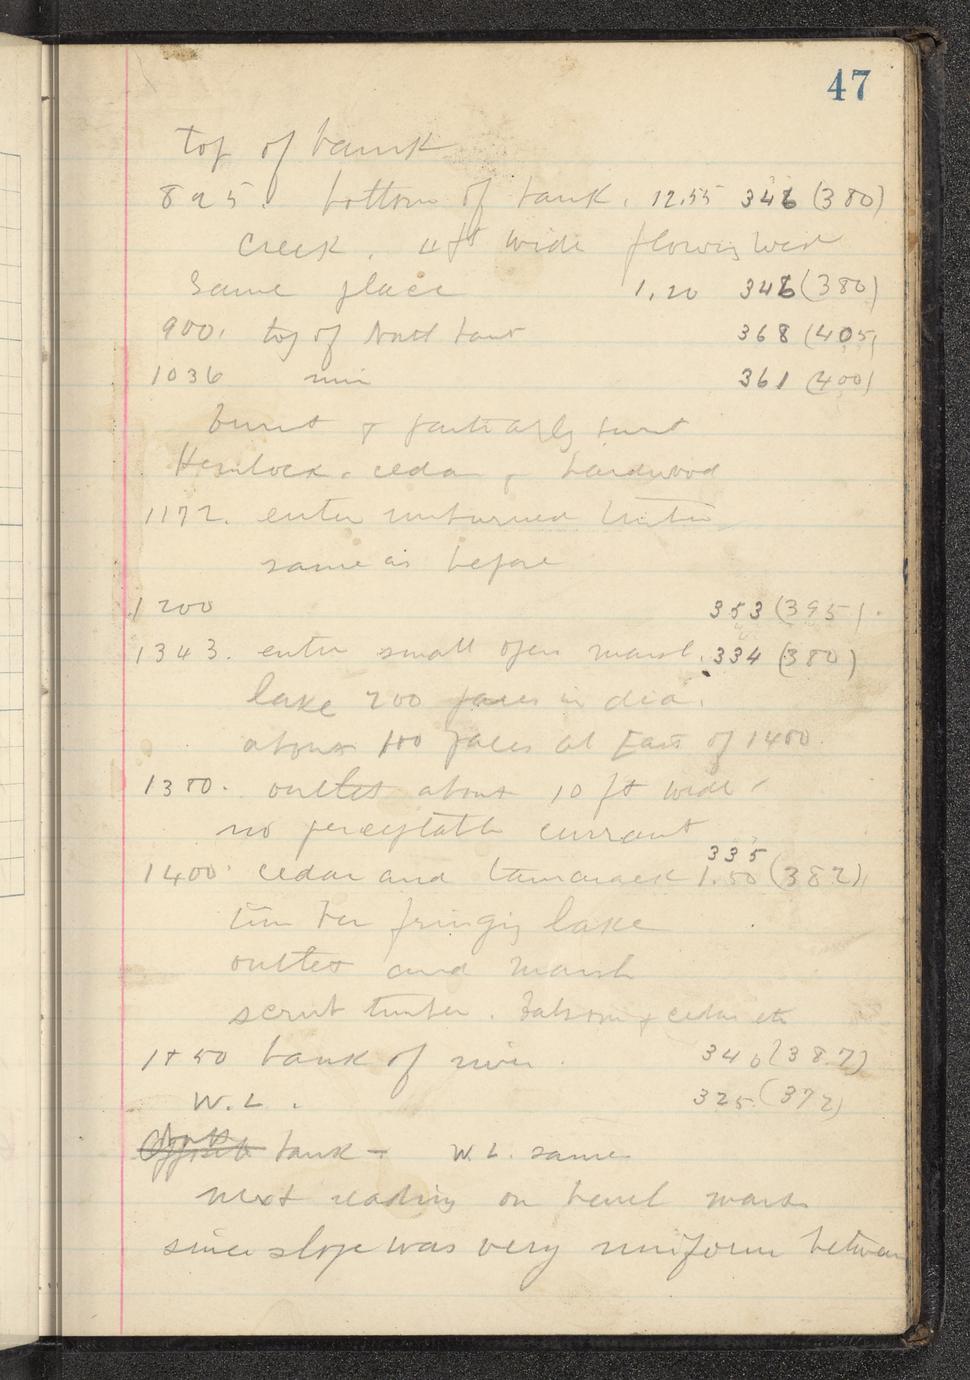 47
top of bank
895. bottom of bank. 12.55 346 (380)
Creek. 4 ft wide flowing West
Same place 1.20 346 (380)
900. top of North bank 368 (405)
1036 min 361 (400)
burnt & partially burnt
Hemlock, cedar & hardwood
1172. enter unburned timber
same as before
1200 353 (395).
1343. enter small open marsh. 334 (380)
lake 200 paces in dia.
about 100 paces at East of 1400.
1380. outlet about 10 ft wide
no perceptable currant
335
1400. cedar and tamarack 1.50 (382)
timber fringing lake
outlet and marsh
scrub timber. Balsom & cedar etc
1450 bank of river. 340 (387)
W.L. 325 (372)
North
Opposite bank - W.L. same
next reading on bench mark
since slope was very uniform between